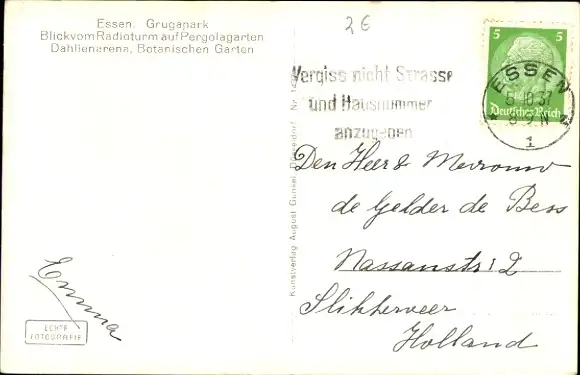 Essen. Grugapark
Blick vom Radioturm auf Pergolagarten
Dahlienarena, Botanischen Garten
2€
Vergiss nicht Strasse
und Hausnummer
anzugeben
ESSEN
5.10.37
1
5 5
Deutsches Reich
Kunstverlag August Gunkel, Düsseldorf Nr.
Den Heer & Mevrouw
de Gelder de Bess
Nassaustr 2
Slikkerveer
Holland
Emma
ECHTE
FOTOGRAFIE